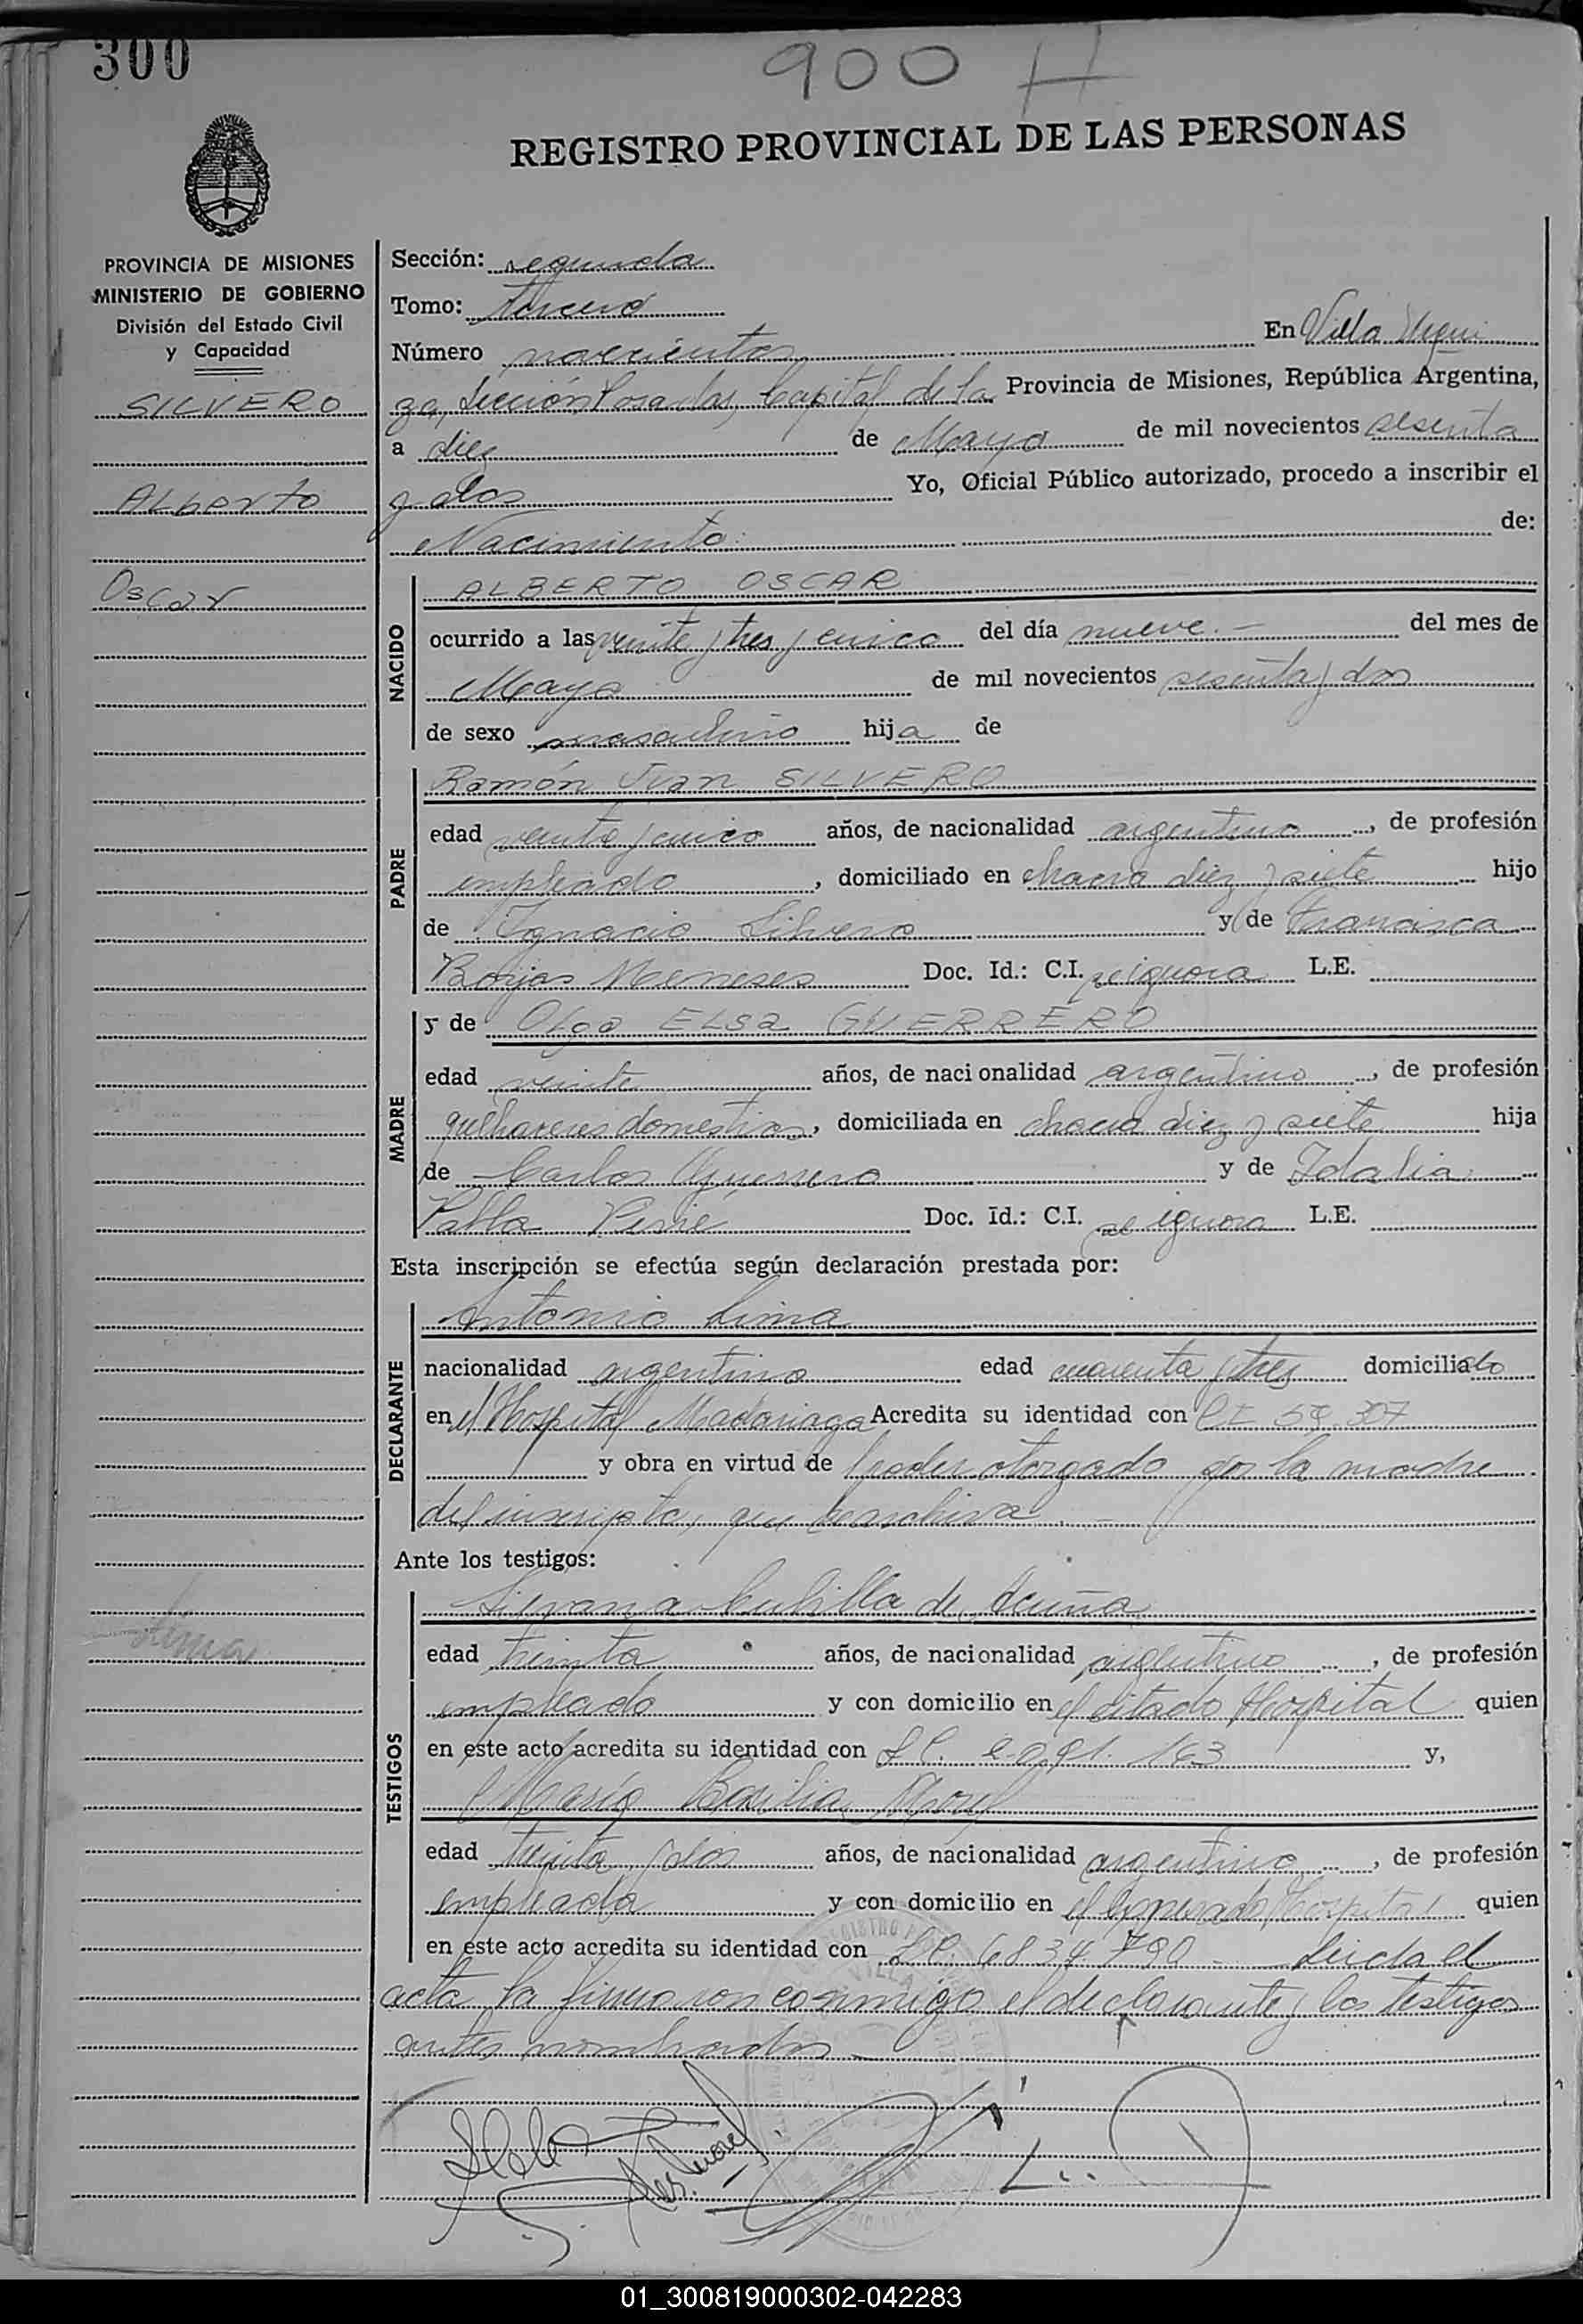 300
900 H
REGISTRO PROVINCIAL DE LAS PERSONAS
PROVINCIA DE MISIONES
MINISTERIO DE GOBIERNO
División del Estado Civil
y Capacidad
SILVERO
Alberto
Oscar
Lima
Sección: segunda
Tomo: tercero
Número novecientos En Villa Urqui
za, Sección Posadas, Capital de la Provincia de Misiones, República Argentina,
a diez de Mayo de mil novecientos sesenta
y dos Yo, Oficial Público autorizado, procedo a inscribir el
Nacimiento de:
NACIDO
ALBERTO OSCAR
ocurrido a las veinte y tres y cinco del día nueve.- del mes de
Mayo de mil novecientos sesenta y dos
de sexo masculino hija de
PADRE
Ramón Juan SILVERO
edad veinte y cinco años, de nacionalidad argentino, de profesión
empleado, domiciliado en chacra diez y siete hijo
de Ignacio Silvero y de Francisca
Borjas Meneses Doc. Id.: C.I. se ignora L.E.
MADRE
y de Olga Elsa GUERRERO
edad veinte años, de nacionalidad argentino, de profesión
quehaceres domesticos, domiciliada en chacra diez y siete hija
de Carlos Guerrero y de Idalia
Pabla Doc. Id.: C.I. se ignora L.E.
Esta inscripción se efectúa según declaración prestada por:
DECLARANTE
Antonio Lima
nacionalidad argentino edad cuarenta y tres domiciliado
en el Hospital Madariaga Acredita su identidad con CI 59.307
y obra en virtud de poder otorgado por la madre
del inscripto, que se archiva.-
Ante los testigos:
TESTIGOS
Cubilla de Acuña
edad treinta años, de nacionalidad argentino, de profesión
empleado y con domicilio en el citado Hospital quien
en este acto acredita su identidad con LC. 2.091.163 y,
María Basilia Morel
edad treinta y dos años, de nacionalidad argentino, de profesión
empleada y con domicilio en el Hospital quien
en este acto acredita su identidad con LC. 6834.790 - Leida el
acta la firmaron conmigo el declarante y los testigos
antes nombrados -
01_300819000302-042283